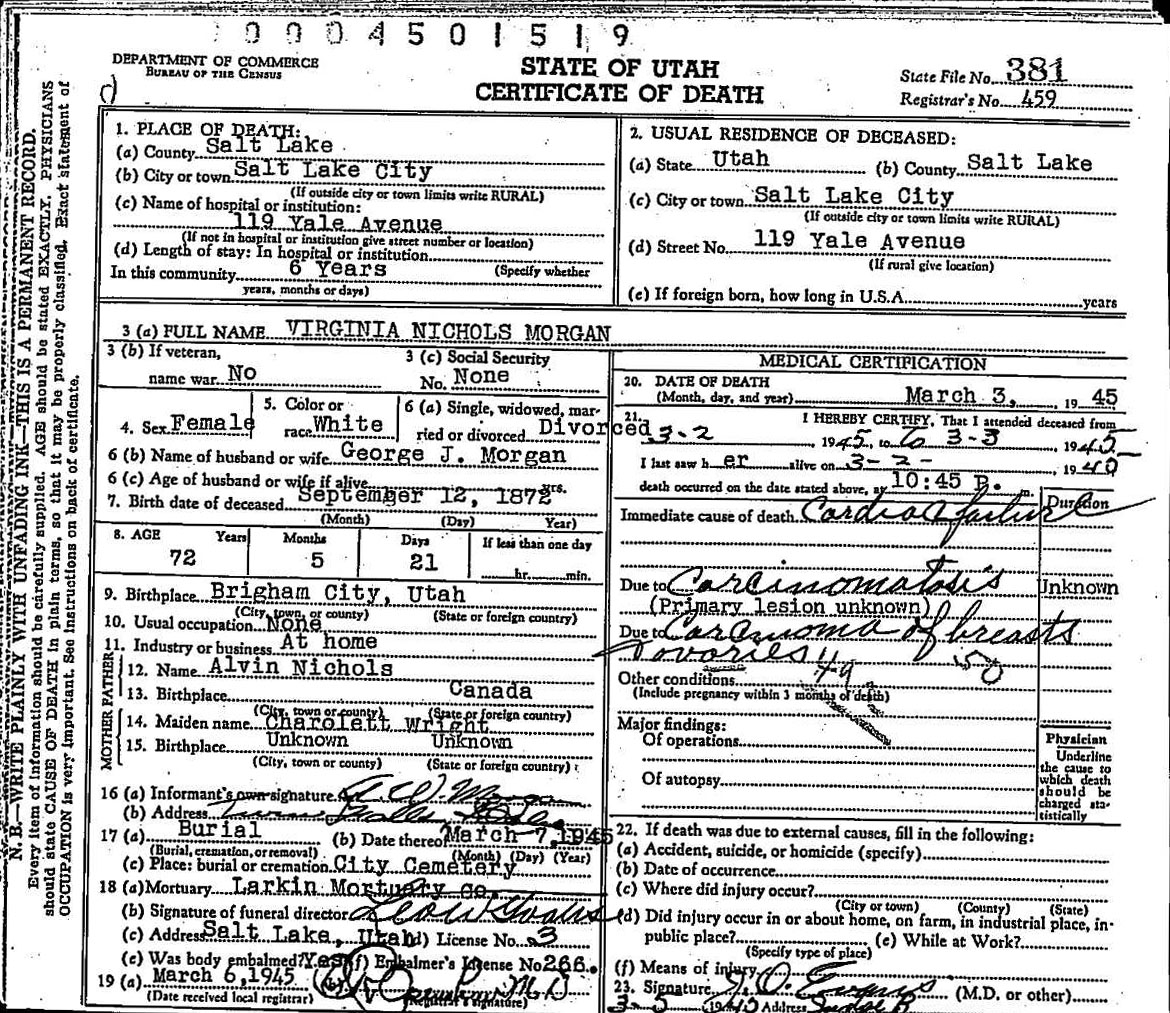 0 0 0 4 5 0 1 5 1 9
DEPARTMENT OF COMMERCE
BUREAU OF THE CENSUS
STATE OF UTAH
CERTIFICATE OF DEATH
State File No. 381
Registrar's No. 459
N. B.—WRITE PLAINLY WITH UNFADING INK—THIS IS A PERMANENT RECORD.
Every item of information should be carefully supplied. AGE should be stated EXACTLY. PHYSICIANS
should state CAUSE OF DEATH in plain terms, so that it may be properly classified. Exact statement of
OCCUPATION is very important. See instructions on back of certificate.
1. PLACE OF DEATH:
(a) County Salt Lake
(b) City or town Salt Lake City
(If outside city or town limits write RURAL)
(c) Name of hospital or institution:
119 Yale Avenue
(If not in hospital or institution give street number or location)
(d) Length of stay: In hospital or institution
In this community 6 Years (Specify whether
years, months or days)
2. USUAL RESIDENCE OF DECEASED:
(a) State Utah (b) County Salt Lake
(c) City or town Salt Lake City
(If outside city or town limits write RURAL)
(d) Street No. 119 Yale Avenue
(If rural give location)
(e) If foreign born, how long in U.S.A. years
3 (a) FULL NAME VIRGINIA NICHOLS MORGAN
3 (b) If veteran,
name war No
3 (c) Social Security
No. None
4. Sex Female
5. Color or
race White
6 (a) Single, widowed, mar-
ried or divorced Divorced
6 (b) Name of husband or wife George J. Morgan
6 (c) Age of husband or wife if alive yrs.
7. Birth date of deceased September 12, 1872
(Month) (Day) Year)
8. AGE Years Months Days If less than one day
72 5 21 hr. min.
9. Birthplace Brigham City, Utah
(City, town, or county) (State or foreign country)
10. Usual occupation None
11. Industry or business At home
FATHER
12. Name Alvin Nichols
13. Birthplace Canada
(City, town or county) (State or foreign country)
MOTHER
14. Maiden name Charolett Wright
15. Birthplace Unknown Unknown
(City, town or county) (State or foreign country)
16 (a) Informant's own signature
(b) Address
17 (a) Burial (b) Date thereof March 7, 1945
(Burial, cremation, or removal) (Month) (Day) (Year)
(c) Place: burial or cremation City Cemetery
18 (a) Mortuary Larkin Mortuary co.
(b) Signature of funeral director
(c) Address Salt Lake, Utah (d) License No. 3
(e) Was body embalmed? Yes (f) Embalmer's License No 266.
19 (a) March 6, 1945 (b) M D
(Date received local registrar) Registrar's signature)
MEDICAL CERTIFICATION
20. DATE OF DEATH
(Month, day, and year) March 3, 19 45
21. I HEREBY CERTIFY, That I attended deceased from
3-2 1945, to to 3-3 1945
I last saw her alive on 3-2- 1940
death occurred on the date stated above, at 10:45 P. m.
Duration
Immediate cause of death Cardiac failure
Due to Carcinomatosis Unknown
(Primary lesion unknown)
Due to Carcinoma of breasts
ovaries 49 50
Other conditions
(Include pregnancy within 3 months of death)
Major findings:
Of operations
Of autopsy
Physician
Underline
the cause to
which death
should be
charged sta-
tistically
22. If death was due to external causes, fill in the following:
(a) Accident, suicide, or homicide (specify)
(b) Date of occurrence
(c) Where did injury occur?
(City or town) (County) (State)
(d) Did injury occur in or about home, on farm, in industrial place, in-
public place? (e) While at Work?
(Specify type of place)
(f) Means of injury
23. Signature O. Evans (M.D. or other)
3-5 1945 Address